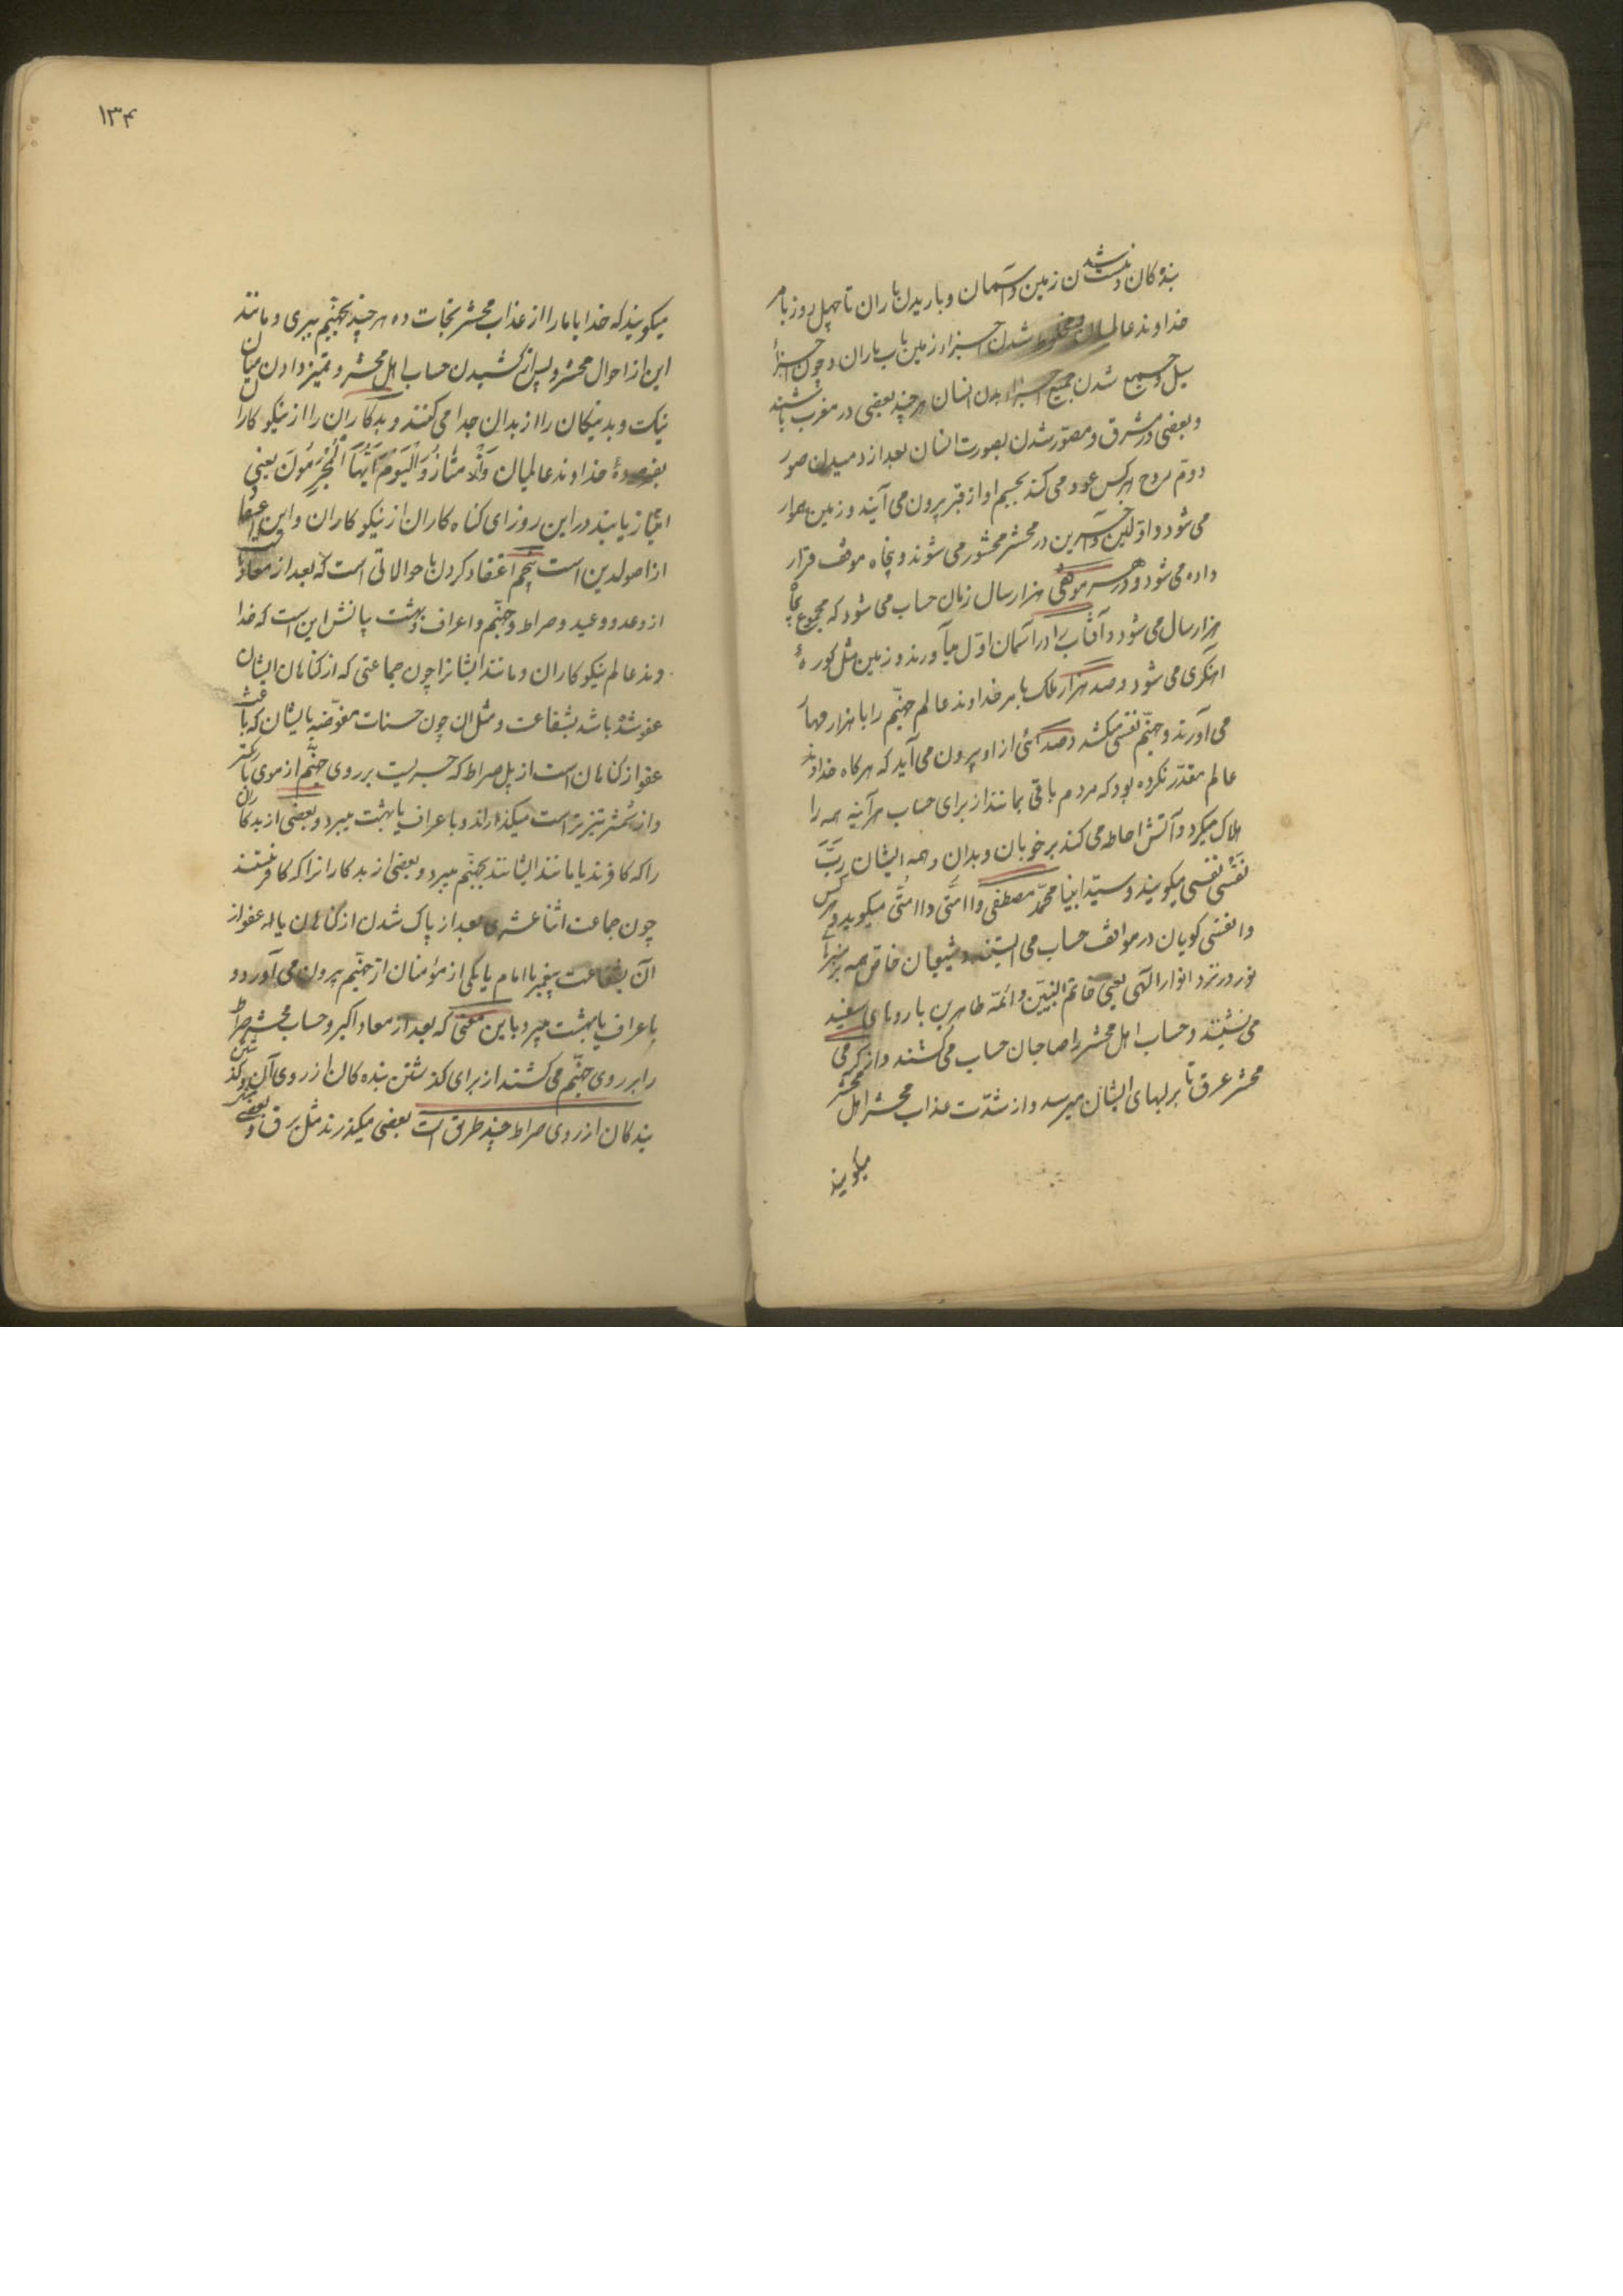 بنده کان و نیست شدن زمین و آسمان و باریدن باران تا چهل روز بامر
خداوند عالمیان و مخلوط شدن اجزاء زمین بآب باران و چون اجزاء
سیل و جمیع شدن جمیع اجزاء بدن انسان هر چند بعضی در مغرب باشند
و بعضی در مشرق و مصوّر شدن بصورت انسان بعد از دمیدن صور
دوّم روح هر کس عود می کند بجسم او از قبر بیرون می آیند و زمین هموار
می شود و اوّلین و آخرین در محشر محشور می شوند و پنجاه موقف قرار
داده می شود و در هر موقفی هزار سال زمان حساب می شود که مجموع پنجاه
هزار سال می شود و آفتاب را در آسمان اوّل میآورند و زمین مثل کوره ٔ
اهنگری می شود و صد هزار ملک بامر خداوند عالم جهنّم را با هزار مهار
می آورند و جهنّم نفسی میکشد و صدائی از او بیرون می آید که هر کاه خداوند
عالم مقدّر نکرده بود که مردم باقی بمانند از برای حساب هر آینه همه را
هلاک میکرد و آتش احاطه می کند بر خوبان و بدان و همه ایشان ربّ
نفسی نفسی میکویند و سیّد انبیا محمّد مصطفی وا امّتی وا امّتی میکوید و هر کس
وا نفسی کویان در مواقف حساب می ایستند و شیعیان خاص همه بر منبرهای
نور در نزد انوار الهی یعنی خاتم النبیّن و ائمّه طاهرین با روهای سفید
می نشینند و حساب اهل محشر را صاحبان حساب می کشند و از کرمی
محشر عرق تا بر لبهای ایشان میرسد و از شدّت عذاب محشر اهل محشر
میکویند
۱۳۴
میکویند که خدایا ما را از عذاب محشر نجات ده هر چند بجهنّم ببری و مانند
این از احوال محشر و پس از کشیدن حساب اهل محشر و تمیز دادن میان
نیک و بد نیکان را از بدان جدا می کنند و بدکاران را از نیکو کاران
بفرموده ٔ خداوند عالمیان وَامْتَازُوا الْیَوْمَ اَیُّهَا الْمُجْرِمُونَ یعنی
امتیاز یابید در این روز ای کناه کاران از نیکو کاران و این اعتقاد
از اصولدین است پنجم اعتقاد کردن باحوالاتی است که بعد از معاد
از وعد و وعید و صراط و جهنّم و اعراف و بهشت بیانش این است که خدا
وند عالم نیکو کاران و مانند ایشانرا چون جماعتی که از کناهان ایشان
عفو شده باشد بشفاعت و مثل ان چون حسنات مفوّضه بایشان که باعث
عفو از کناهان است از پل صراط که جسریست بر روی جهنّم از موی باریکتر
و از شمشیر تیزتر است میکذراند و باعراف یا بهشت میبرد و بعضی از بدکاران
را که کافرند یا مانند ایشانند بجهنّم میبرد و بعضی از بدکارانرا که کافر نیستند
چون جماعت اثنا عشری بعد از پاک شدن از کناهان یا به عفو از
آن بشفاعت پیغمبر یا امام یا یکی از مؤمنان از جهنّم بیرون می آورد و
باعراف یا بهشت میبرد باین معنی که بعد از معاد اکبر و حساب محشر صراط
را بر روی جهنّم می کشند از برای کذشتن بنده کان از روی آن و کذشتن
بندکان از روی صراط چند طرق است بعضی میکذرند مثل برق و بعضی